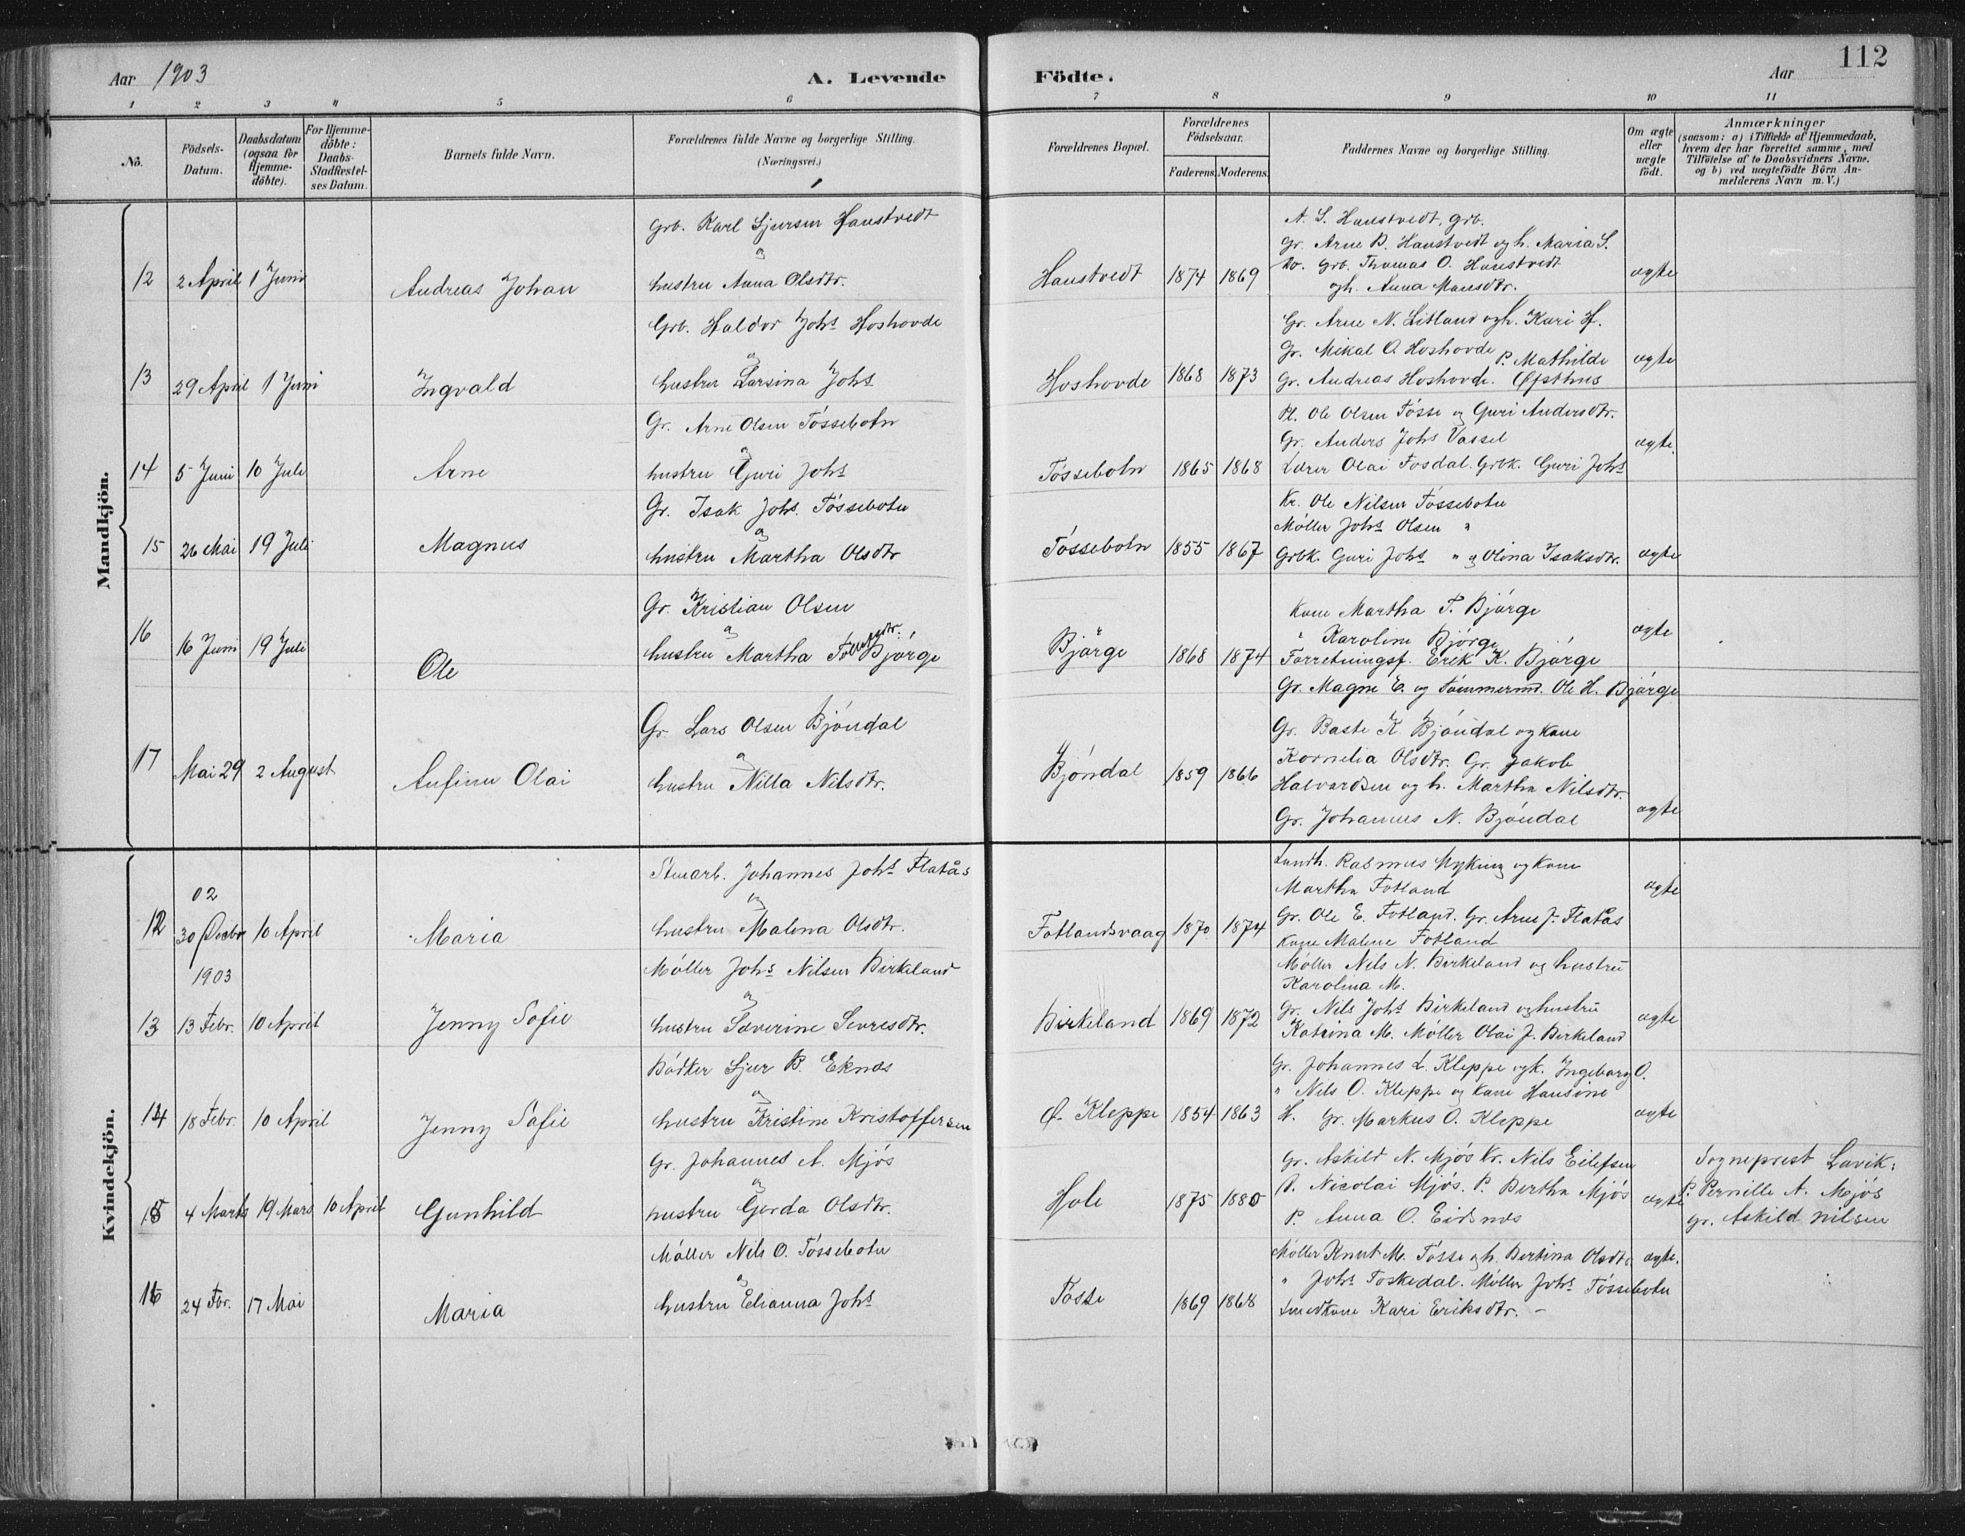 112
Aar 1903
A. Levende Födte.
Aar
1 2 3 4 5 6 7 8 9 10 11
No.
Födsels-Datum.
Daabsdatum (ogsaa for Hjemme-döbte).
For Hjemme-döbte: Daabs-Stadfæstel-ses Datum.
Barnets fulde Navn.
Forældrenes fulde Navne og borgerlige Stilling.
(Næringsvei.)
Forældrenes Bopæl.
Forældrenes Födselsaar.
Faderens. Moderens.
Faddernes Navne og borgerlige Stilling.
Om ægte eller uægte födt.
Anmærkninger
(saasom: a) i Tilfælde af Hjemmedaab,
hvem der har forrettet samme, med
Tilföielse af to Daabsvidners Navne,
og b) ved uægtefödte Börn An-
melderens Navn m. V.)
Mandkjön.
12 2 April 1 Juni Andreas Johan
Grb. Karl Sjursen Haustvedt
og
hustru Anna Olsdtr.
Haustvedt 1874 1869
A. S. Haustvedt, grb.
Gr. Arne B. Haustvedt og h. Maria S.
Grb. Thomas O. Haustvedt
og h. Anna Monsdtr.
ægte
13 29 April 1 Juni Ingvald
Grb. Haldor Johs Hoshovde
og
hustru Larsina Johs
Hoshovde 1868 1873
Gr. Arne N. Litland og h. Kari H.
Gr. Mikal O. Hoshovde P. Mathilde
Gr. Andreas Hoshovde. Øfsthus
ægte
14 5 Juni 10 Juli Arne
Gr. Arne Olsen Tössebotn
og
hustru Guri Johs
Tössebotn 1865 1868
Pl. Ole Olsen Tösse og Guri Andersdtr.
Gr. Anders Johs Vassel
Lærer Olai Fosdal. Grbk. Guri Johs
ægte.
15 26 Mai 19 Juli Magnus
Gr. Isak Johs. Tössebotn
og
hustru Martha Olsdtr
Tössebotn 1855 1867
Kr. Ole Nilsen Tössebotn
Möller Johs Olsen "
Grbk. Guri Johs " og Olina Isaksdtr.
ægte
16 16 Juni 19 Juli Ole
Gr. Kristian Olsen
og
hustru Martha Bjórge
Bjórge 1868 1874
Kone Martha T. Bjórge
" Karoline Bjórge
Forretningsf. Erik K. Bjórge
Gr. Magne E. og Tömmermd. Ole H. Bjórge
ægte
17 Mai 29 2 August Anfinn Olai
Gr. Lars Olsen Bjóndal
og
hustru Nilla Nilsdtr.
Bjóndal 1859 1866
Gr. Baste K. Bjóndal og kone
Kornelia Olsdtr. Gr. Jakob
Halvordsen og h. Martha Nilsdtr.
Gr. Johannes N. Bjóndal
ægte
Kvindekjön.
12 02 30 Decbr 10 April Maria
Stuarb. Johannes Johs Flatås
og
hustru Malena Olsdtr.
Fotlandsvaag 1870 1874
Landh. Rasmus Myking og kone
Martha Fotland
Gr. Ole E. Fotland. Gr. Arne J. Flatås
Kone Malene Fotland
ægte
1903
13 13 Febr. 10 April Jenny Sofie
Möller Johs Nilsen Birkeland
og
hustru Severine Sevresdtr.
Birkeland 1869 1872
Möller Nils N. Birkeland og hustru
Karolina M.
Gr. Nils Johs Birkeland og hustru
Katrina M. Möller Olai J. Birkeland
ægte
14 18 Febr. 10 April Jenny Sofie
Bödker Sjur B. Eknes
og
hustru Kristine Kristoffersen
Ø. Kleppe 1854 1863
Gr. Johannes L. Kleppe og k. Ingeborg O.
" Nils O. Kleppe og kone Hansine
H. Gr. Markus O. Kleppe
ægte
15 4 Marts 19 Mars 10 April Gunhild
Gr. Johannes A. Mjós
og
hustru Gerda Olsdtr.
Hole 1875 1880
Gr. Askild N. Mjós Kr. Nils Eilefsen
P. Nicolai Mjós. P. Bertha Mjós
P. Anna O. Eidsnes
ægte
Sogneprest Lavik:
P. Pernille A. Mjós
Gr. Askild Nilsen
16 24 Fbr. 17 Mai Maria
Möller Nils O. Tössebotn
og
hustru Elianna Johs
Tösse 1869 1868
Möller Knut M. Tösse og h. Bertina Olsdtr
" Johs Toskedal. Möller Johs Tössebotn
Smedkone Kari Eriksdtr. –
ægte.